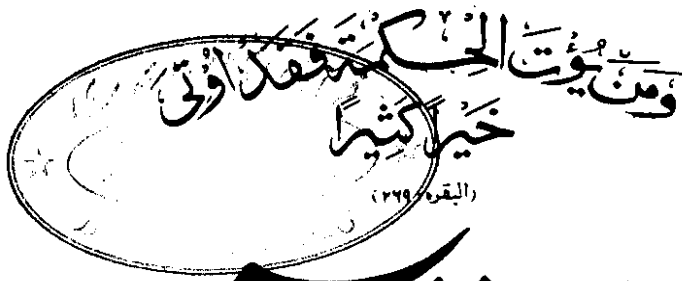 وَمَنْ يُؤْتَ الْحِكْمَةَ فَقَدْ أُوْتِىَ
خَيْرًا كَثِيْرًا
(البقره-۲۶۹)